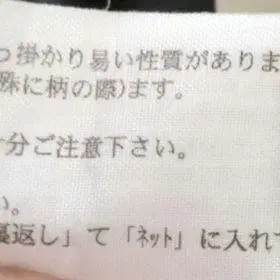 つ掛かり易い性質がありま
殊に柄の際)ます。
十分ご注意下さい。
い。
裏返し」て「ネット」に入れて